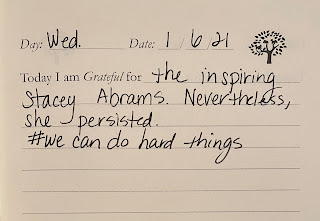 Day: Wed. Date: 1/6/21
Today I am Grateful for the inspiring
Stacey Abrams. Nevertheless,
she persisted.
#we can do hard things